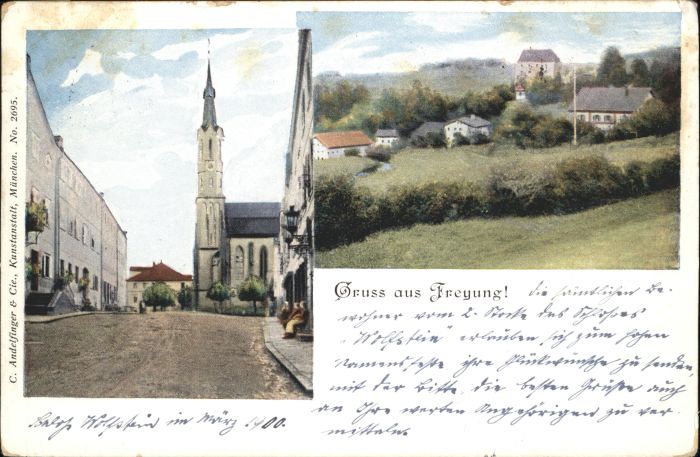 C. Andelfinger & Cie., Kunstanstalt, München. No. 2695.
Gruss aus Freyung!
die sämtlichen Be-
wohner vom 2. Stocke des Schlosses
"Wolfstein" erlauben sich zum hohen
Namensfeste ihre Glückwünsche zu senden,
mit der Bitte, die besten Grüße auch
an Ihre werten Angehörigen zu ver-
mitteln.
Wolfstein im März 1900.